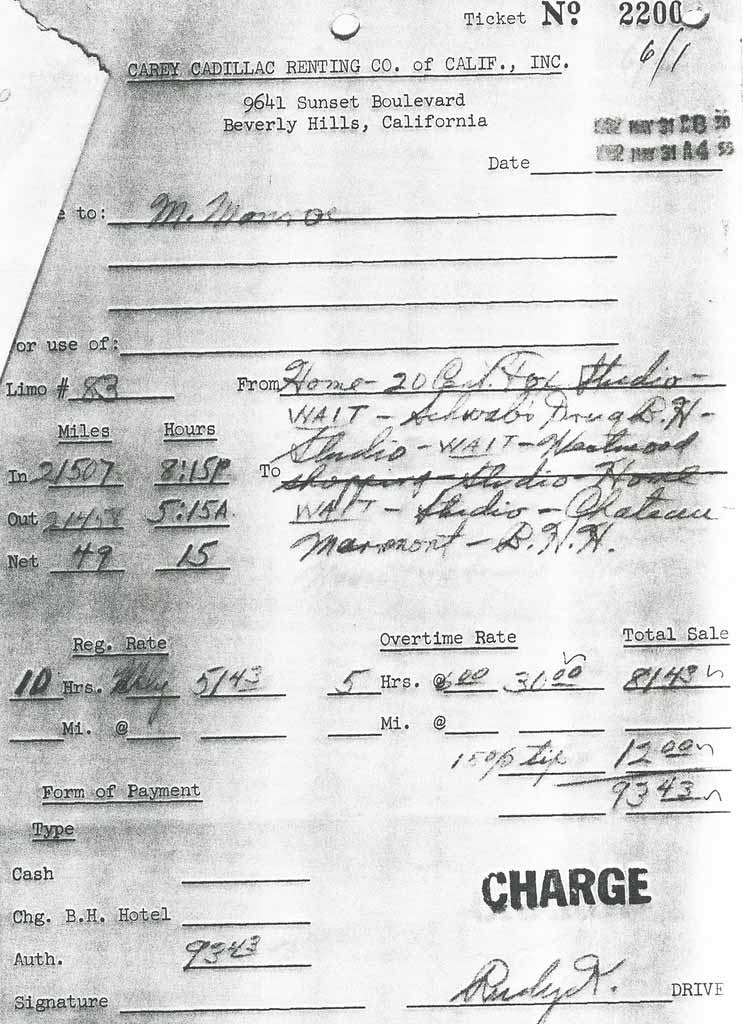 Ticket Nº 2200
6/1
CAREY CADILLAC RENTING CO. of CALIF., INC.
9641 Sunset Boulevard
Beverly Hills, California
MAY 31
MAY 31
Date
e to: M. Monroe
or use of:
Limo # 83
From Home - 20 Cent. Fox Studio -
WAIT - Schwab's Drug B.H. -
Studio - WAIT - Westwood
To shopping - Studio - Home
WAIT - Studio - Chateau
Marmont - B.H.H.
Miles Hours
In 21507 8:15P
Out 21458 5:15A.
Net 49 15
Reg. Rate Overtime Rate Total Sale
10 Hrs. 5143 5 Hrs. @ 6.00 30.00 8143
Mi. @ Mi. @
15% tip 12.00
9343
Form of Payment
Type
Cash
CHARGE
Chg. B.H. Hotel
Auth. 9343
Signature Rudy K. DRIVE